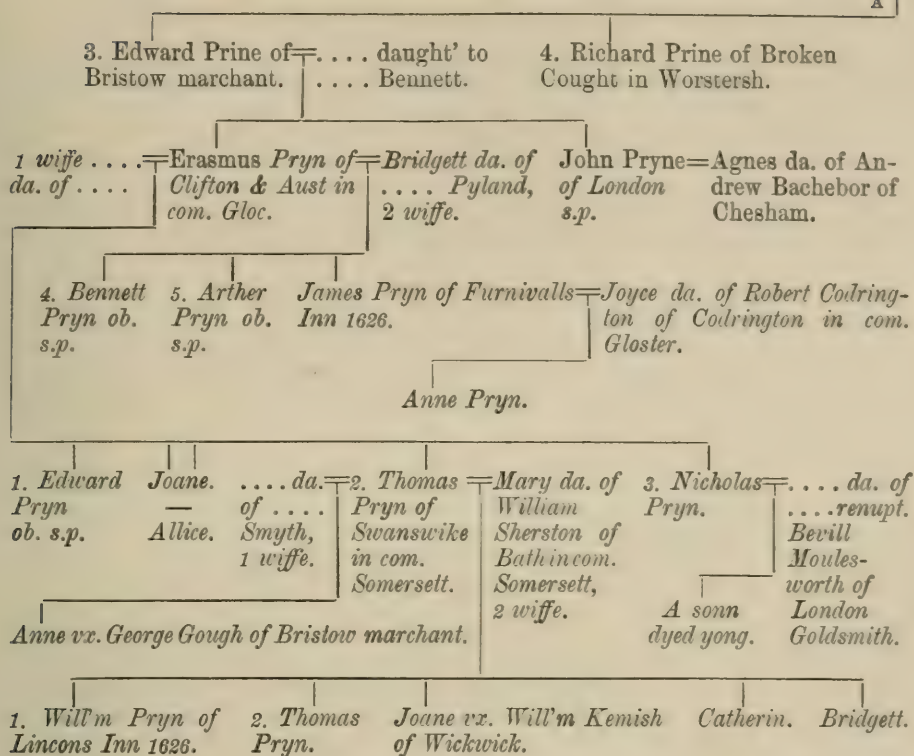 A
3. Edward Prine of=. . . . daught' to
Bristow marchant. . . . . Bennett.
4. Richard Prine of Broken
Cought in Worstersh.
1 wiffe . . . .
da. of . . . .
=Erasmus Pryn of=
Clifton & Aust in
com. Gloc.
Bridgett da. of
. . . . Pyland,
2 wiffe.
John Pryne=
of London
s.p.
Agnes da. of An-
drew Bachebor of
Chesham.
4. Bennett
Pryn ob.
s.p.
5. Arther
Pryn ob.
s.p.
James Pryn of Furnivalls=
Inn 1626.
Joyce da. of Robert Codring-
ton of Codrington in com.
Gloster.
Anne Pryn.
1. Edward
Pryn
ob. s.p.
Joane.
—
Allice.
. . . . da.=
of . . . .
Smyth,
1 wiffe.
2. Thomas =
Pryn of
Swanswike
in com.
Somersett.
Mary da. of
William
Sherston of
Bath in com.
Somersett,
2 wiffe.
3. Nicholas=
Pryn.
. . . . da. of
. . . . renupt.
Bevill
Moules-
worth of
London
Goldsmith.
A sonn
dyed yong.
Anne vx. George Gough of Bristow marchant.
1. Will'm Pryn of
Lincons Inn 1626.
2. Thomas
Pryn.
Joane vx. Will'm Kemish
of Wickwick.
Catherin.
Bridgett.